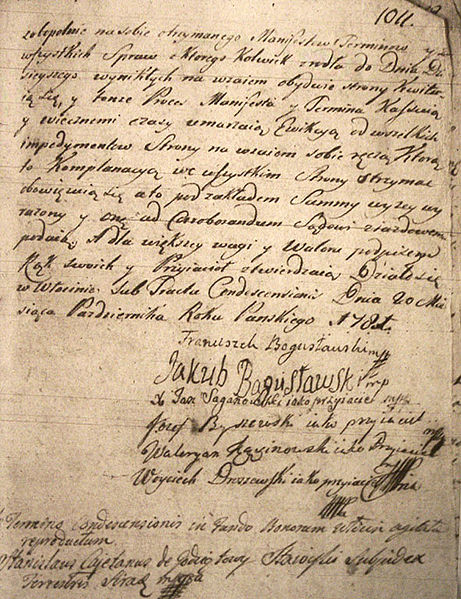 1011.
zobopolnie na sobie otrzymanego Manifestow Terminow y ze
wszystkich Spraw z ktorego kolwiek zrodła do Dnia Dzi
sieyszego wynikłych na wzaiem obydwie strony kwitu
ią się, y tenze Proces Manifesta y Termina Kassuią
y wiecznemi czasy umarzaią Ewikcyą od wszelkich
impedymentow Strony na wzaiem sobie ręczą Ktorą
to Komplanacyą we wszystkim Strony otrzymac
obowięzuią się a to pod zakładem Summy wyzey wy
razoney y onę ad Coroborandum Sądowi ziazdowemu
podaią, A dla większey wagi y Waloru podpisem
Rąk swoich y Przyiacioł ztwierdzaią Działo się
w Sub Tractu Condescensiani Dnia 20 Mie
siąca Pazdziernika Roku Panskiego
Franciszek Bogusławski mpp
Jakub Bogusławski mp
X Jan Saganowski iako przyiaciel mpp
Jozef Byszewski iako przyiaciel
Waleryan iako Przyiaciel
Woyciech iako przyiaciel
Termino Condescensionis in Fundo Bonorum agitato
reproductum
Stanislaus Cajetanus de Subjudex
Terrestris Sirad mppa